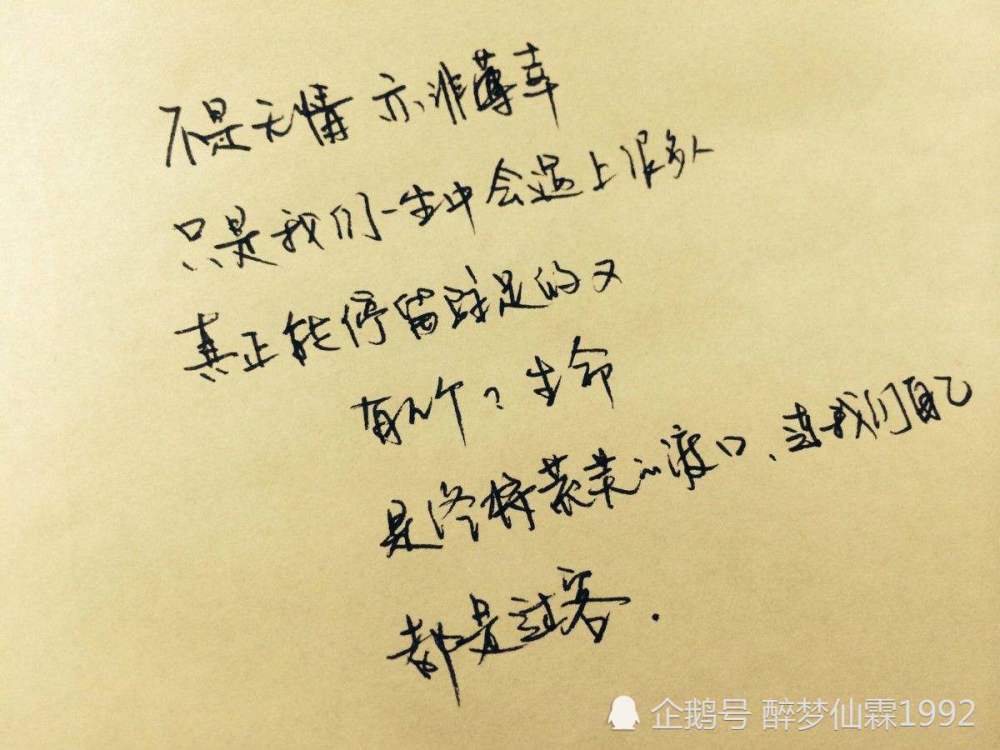 不是无情 亦非薄幸
只是我们一生中会遇上很多人
真正能停留驻足的又
有几个？生命
是终将荒芜的渡口、连我们自己
都是过客.
企鹅号 醉梦仙霖1992